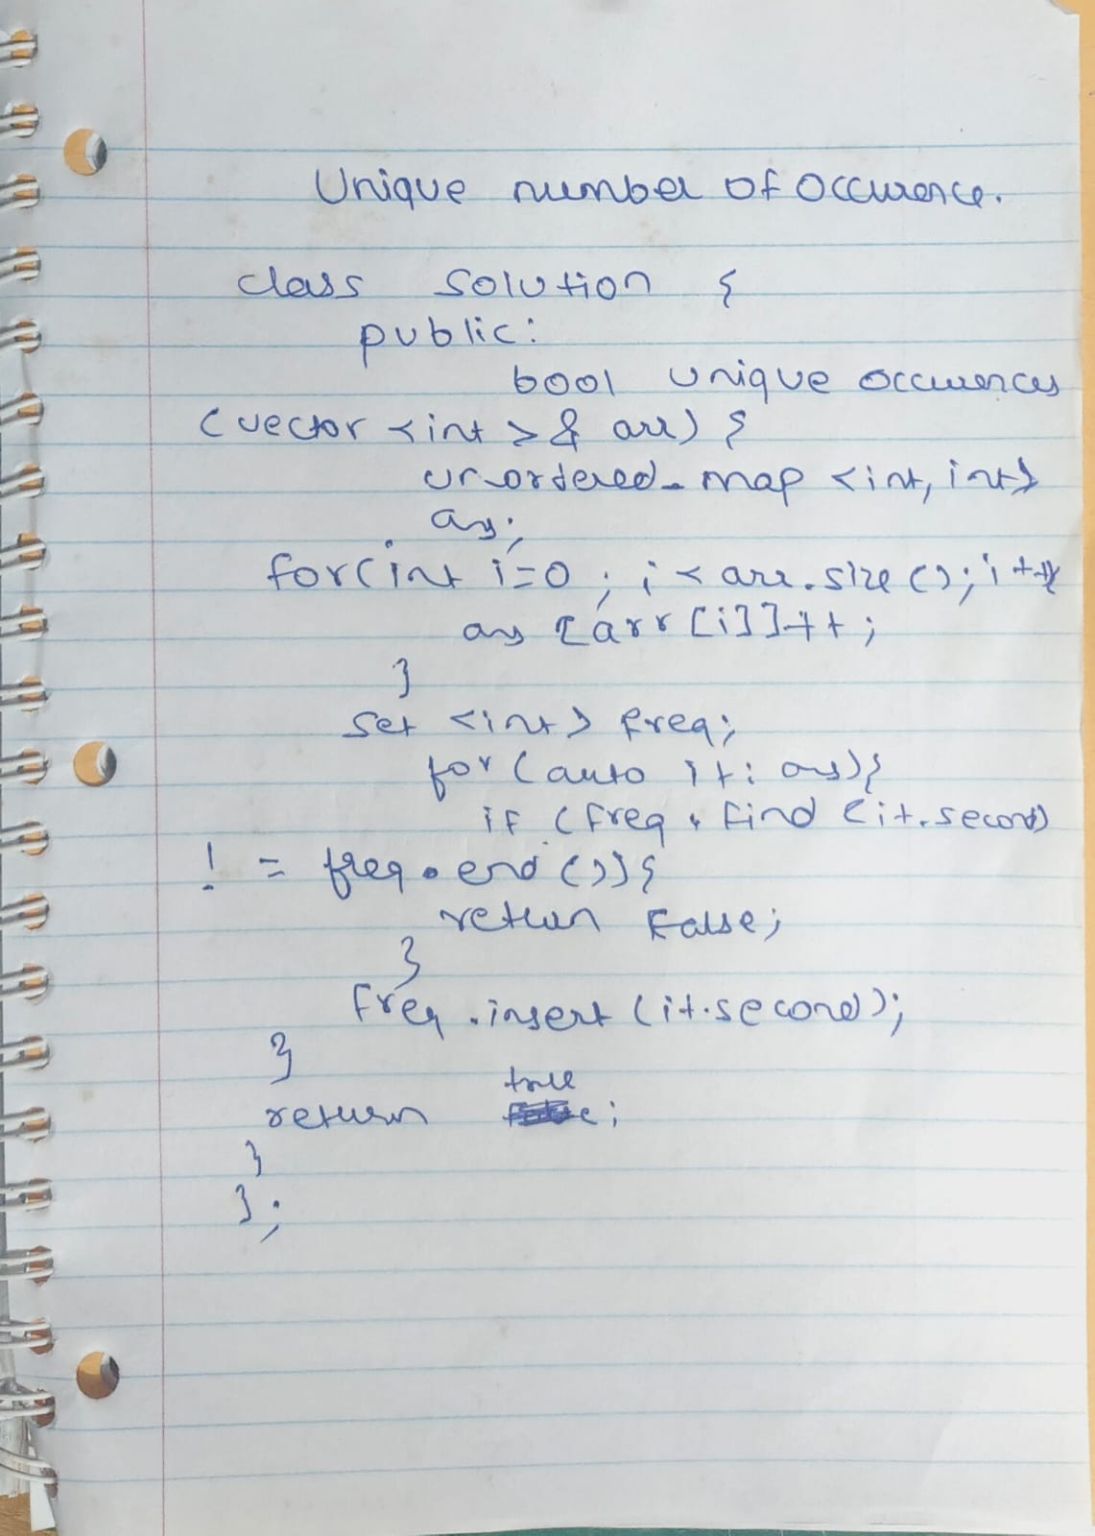 Unique number of Occurence.
class solution {
public:
bool unique occurences
(vector <int >& arr) {
unordered_map <int, int>
ans;
for(int i=0 ; i < arr.size (); i++){
ans [arr [i]]++;
}
set <int> freq;
for (auto it: ans){
if (freq . find (it.second)
! = freq.end ()){
return False;
}
freq .insert (it.second);
}
true
return ;
}
};